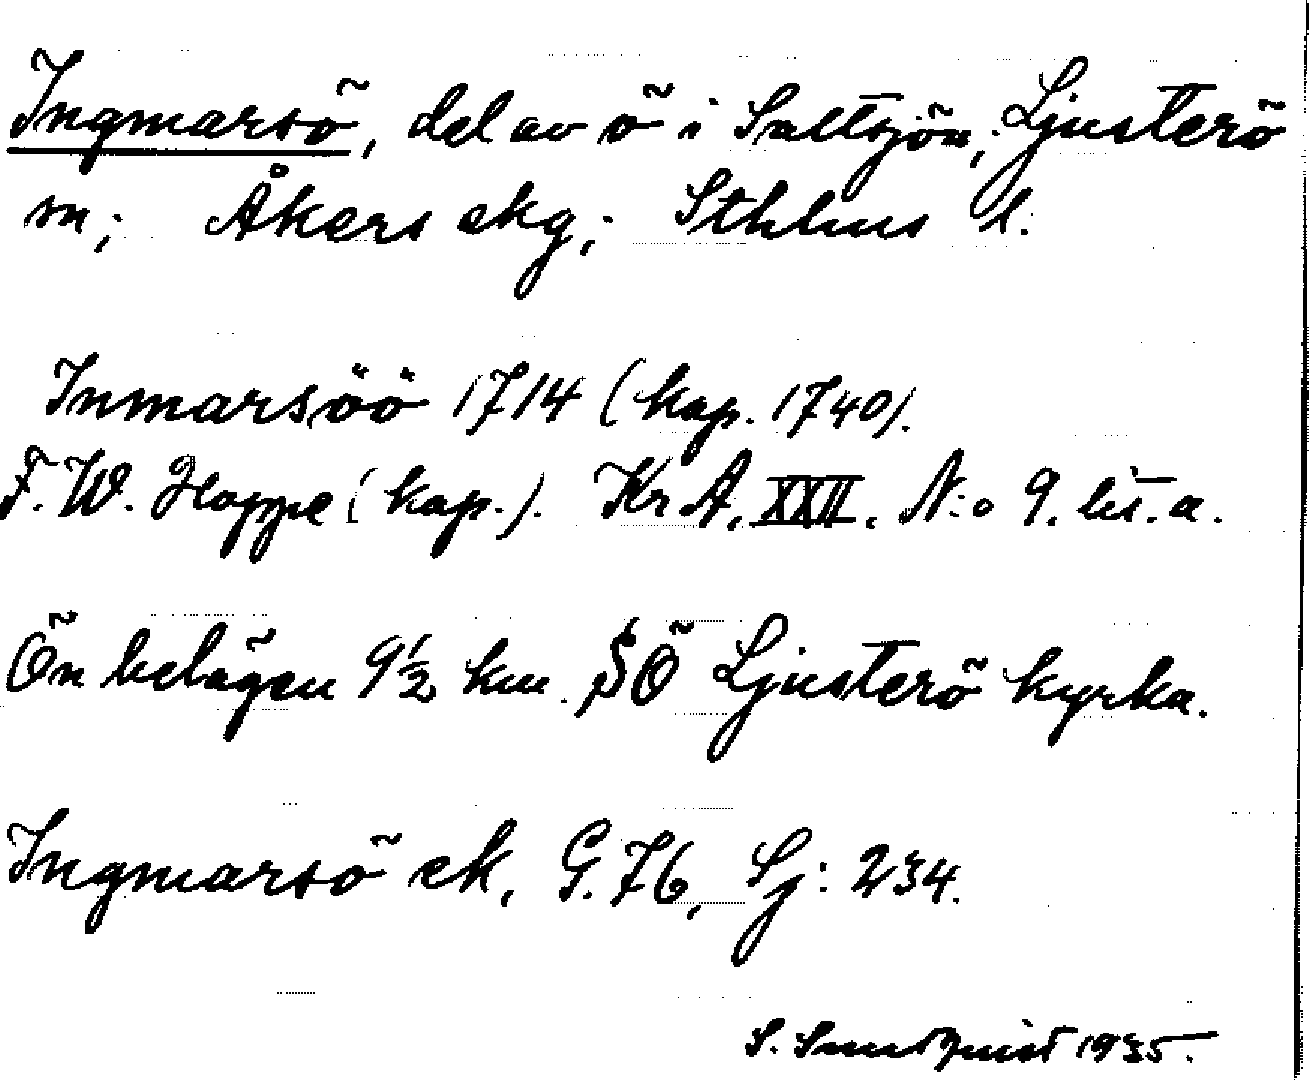 Ingmarsö, del av ö i Saltsjön, Ljusterö
sn; Åkers skg; Sthlms l.
Inmarsöö 1714 (kap. 1740).
F. W. Hoppe (kap.). KrA. XXII. N:o 9. lit. a.
Ön belägen 9½ km. SÖ Ljusterö kyrka.
Ingmarsö ek, G. 76, Sj: 234.
S. Sundquist 1935.